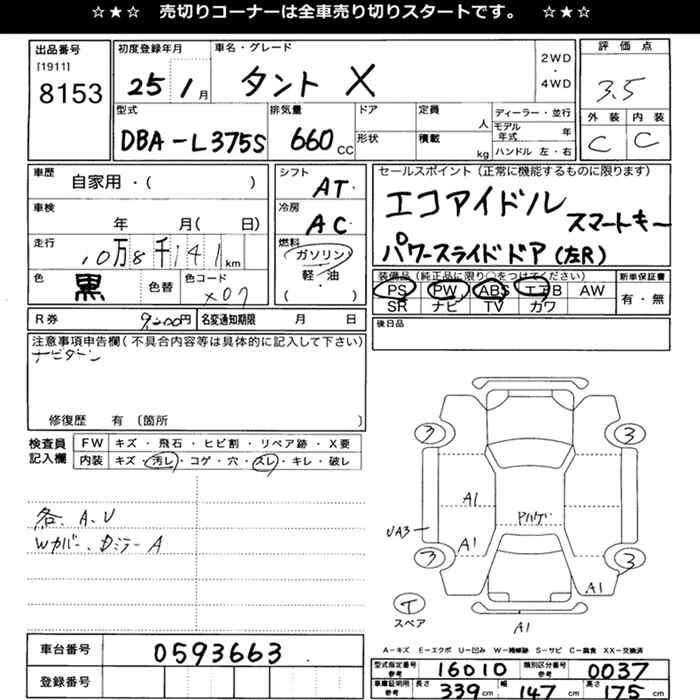 ☆★☆ 売切りコーナーは全車売り切りスタートです。 ☆★☆
出品番号
[1911]
8153
初度登録年月
25 1月
車名・グレード
タント X
2WD
・
4WD
評価点
3.5
外装 内装
C C
型式
DBA-L375S
排気量
660cc
ドア
形状
定員
人
積載
kg
ディーラー・並行
モデル年式 年
ハンドル 左・右
車歴
自家用・( )
車検
年 月( 日)
走行
10万8千141km
色
黒
色替
色コード
X07
シフト
AT
冷房
AC
燃料
ガソリン
軽・油
( )
セールスポイント(正常に機能するものに限ります)
エコアイドル
スマートキー
パワースライドドア(左R)
装備品(純正品に限り○をつけてください)
PS PW ABS エアB AW
SR ナビ TV カワ
新車保証書
有・無
R券
円
名変通知期限 月 日
後日品
注意事項申告欄(不具合内容等は具体的に記入して下さい)
修復歴 有 〔箇所 〕
検査員
記入欄
FW キズ・飛石・ヒビ割・リペア跡・X要
内装 キズ・汚レ・コゲ・穴・スレ・キレ・破レ
各、A、U
Wカバー、Dミラー A
3 3
A1
UA3
A1
3 3
A1
T
スペア
A1
A−キズ E−エクボ U−凹み W−補修跡 S−サビ C−腐食 XX−交換済
車台番号
0593663
登録番号
型式指定番号
参考
16010
類別区分番号
参考
0037
車庫証明用
参考
長さ 339cm
幅 147cm
高さ 175cm